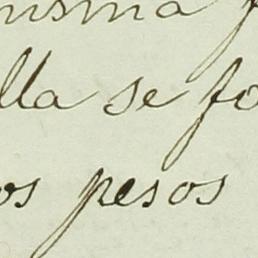 misma f
lla se fo
os pesos